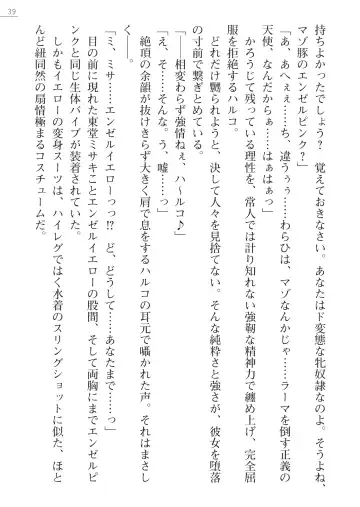 39
持ちよかったでしょう？　覚えておきなさい。あなたはド変態な牝奴隷なのよ。そうよね、
マゾ豚のエンゼルピンク？」
「あ、あへぇぇ……ち、違うぅぅ……わらひは、マゾなんかじゃ……ラーマを倒す正義の
天使、なんだからぁ……はぁはぁっ」
　かろうじて残っている理性を、常人では計り知れない強靭な精神力で纏め上げ、完全屈
服を拒絶するハルコ。
　どれだけ嬲られようと、決して人々を見捨てない。そんな純粋さと強さが、彼女を堕落
の寸前で繋ぎとめている。
「――相変わらず強情ねぇ、ハ～ルコ♪」
「え、そ……そんな。う、嘘……っ」
　絶頂の余韻が抜けきらず大きく肩で息をするハルコの耳元で囁かれた声。それはまさし
く――。
「ミ、ミサ……エンゼルイエローっっ!?　ど、どうして……あなたまで……っ」
　目の前に現れた東堂ミサキことエンゼルイエローの股間、そして両胸にまでエンゼルピ
ンクと同じ生体バイブが装着されていた。
　しかもイエローの変身スーツは、ハイレグではく水着のスリングショットに似た、ほと
んど紐同然の扇情極まるコスチュームだ。